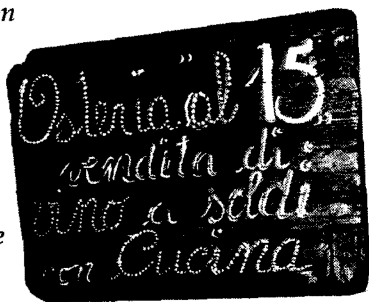 on
Osteria al "15"
vendita di
vino a soldi
con Cucina
e